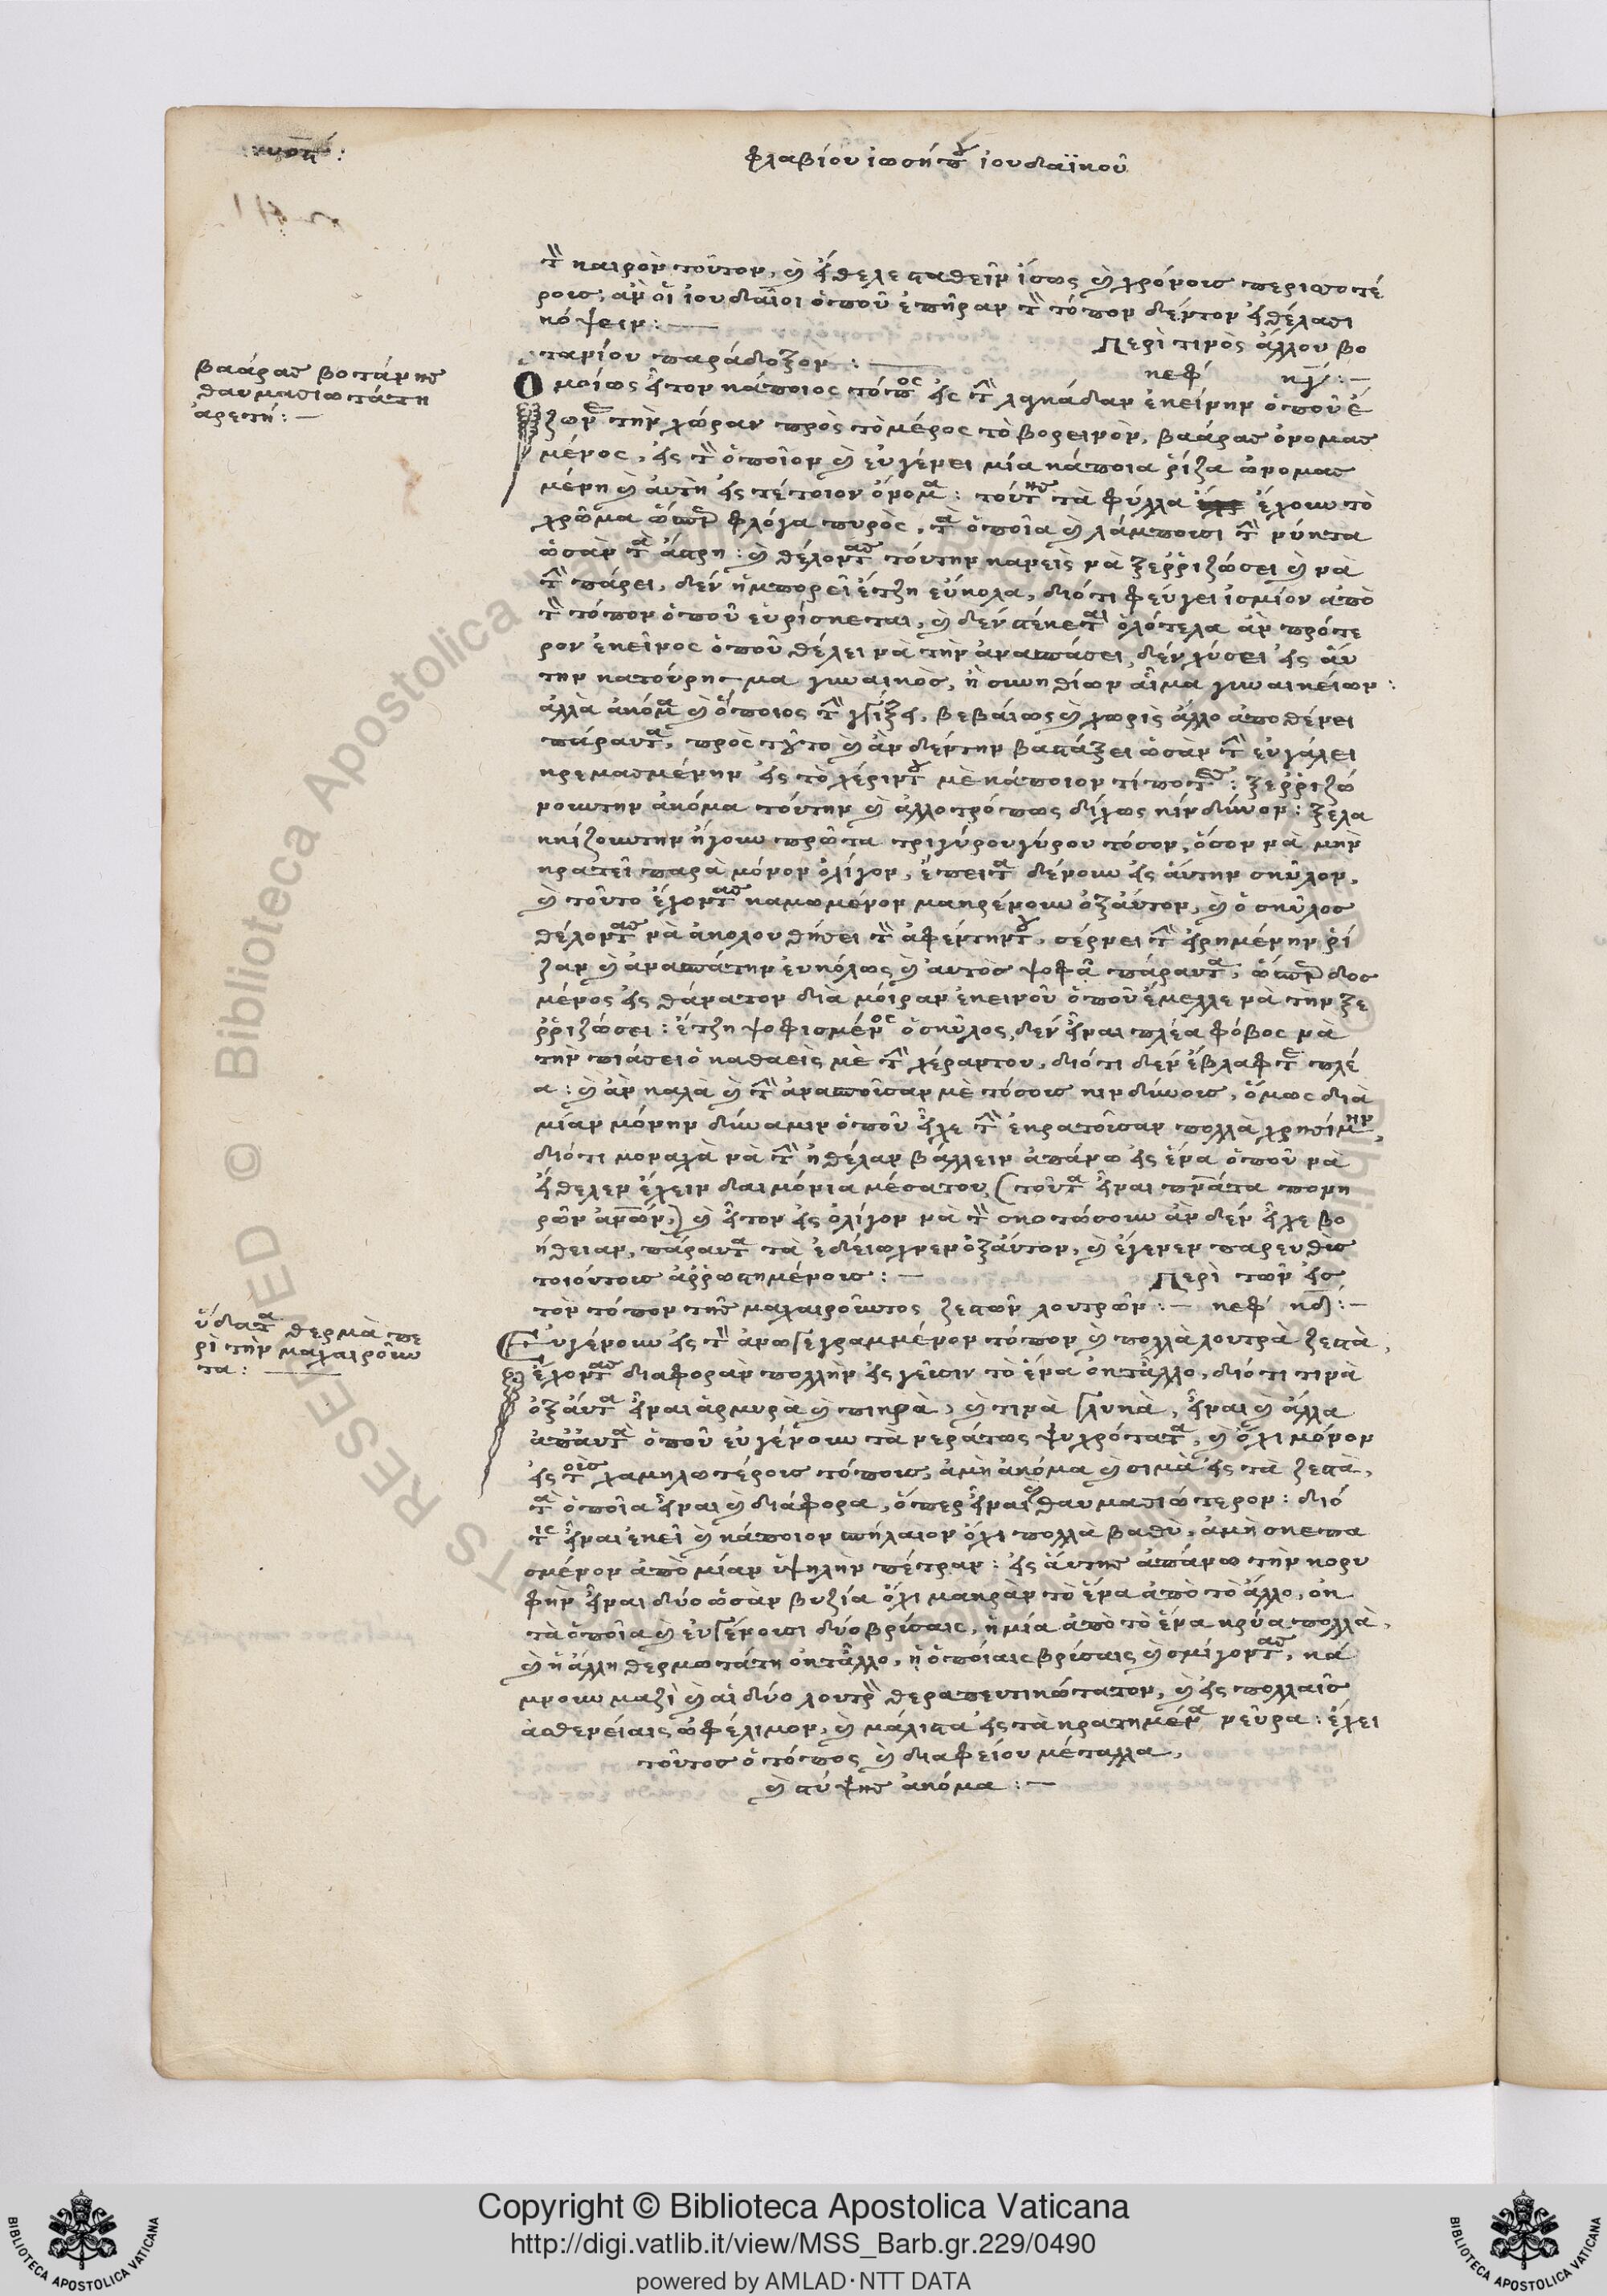 φλαβίου ἰωσήπου ἰουδαϊκοῦ
τὸν καιρὸν τοῦτον, καὶ ἤθελε σταθεῖν ἴσως καὶ χρόνους περισσοτέ
ρους, ἂν οἱ ἰουδαῖοι ὁποῦ ἐπῆραν τὸν τόπον δέντον ἠθέλασι
κόψειν: Περὶ τινὸς ἄλλου βο
τανίου παράδοξον: κεφ κγ:
βαάρας βοτάνης
θαυμασιωτάτη
ἀρετή:
Ὁμοίως ἦτον κάποιος τόπος εἰς τὴν λαγκάδαν ἐκείνην ὁποῦ ἔ
ζωνε τὴν χώραν πρὸς τὸ μέρος τὸ βορεινὸν, βαάρας ὀνομασ
μένος, εἰς τὸν ὁποῖον καὶ εὐγένει μία κάποια ῥίζα ὠνομασ
μένη καὶ αὐτὴ εἰς τέτοιον ὄνομα: τούτης τὰ φύλλα ἔχουν τὸ
χρῶμα ὥσπερ φλόγα πυρὸς, τὰ ὁποῖα καὶ λάμπουσι τὴν νύκτα
ὡσὰν τὰ ἄστρη: καὶ θέλοντας τούτην κανεὶς νὰ ξερριζώσει καὶ νὰ
τὴν πάρει, δὲν ἠμπορεῖ ἔτζη εὔκολα, διότι φεύγει ἰσμίον ἀπὸ
τὸν τόπον ὁποῦ εὑρίσκεται, καὶ δὲν στέκεται ὁλότελα ἂν πρότε
ρον ἐκεῖνος ὁποῦ θέλει νὰ τὴν ἀνασπάσει, δὲν χύσει εἰς αὔ
την κατούρησμα γυναικὸς, ἢ συνηθίων αἷμα γυναικείων:
ἀλλὰ ἀκόμα καὶ ὅποιος τὴν γγίξει, βεβαίως καὶ χωρὶς ἄλλο ἀποθένει
πάραυτα, πρὸς τοῦτο καὶ ἂν δέντην βαστάξει ὡσὰν τὴν εὐγάλει
κρεμασμένην εἰς τὸ χέριντου μὲ κάποιον τίποτες: ξερριζώ
νουντην ἀκόμα τούτην καὶ ἀλλοτρόπως δίχως κίνδυνον: ξελα
κκίζουντην ἤγουν πρῶτα τριγύρου γύρου τόσον, ὅσον νὰ μὴν
κρατεῖ παρὰ μόνον ὀλίγον, ἔπειτα δένουν εἰς αὔτην σκῦλον,
καὶ τοῦτο ἔχοντας καμωμένον μακρένουν ὀξαύτον, καὶ ὁ σκῦλος
θέλοντας νὰ ἀκολουθήσει τὸν ἀφέντηντου, σέρνει τὴν εἰρημένην ῥί
ζαν καὶ ἀνασπάτην εὐκόλως καὶ αὐτὸς ψοφᾶ πάραυτα, ὥσπερ δοσ
μένος εἰς θάνατον διὰ μοίραν ἐκεινοῦ ὁποῦ ἔμελλε νὰ τὴν ξε
ρριζώσει: ἔτζη ψοφισμένος ὁ σκῦλος, δὲν εἶναι πλέα φόβος νὰ
τὴν πιάσει ὁ καθαεὶς μὲ τὴν χέραντου, διότι δὲν ἐβλάφτε πλέ
α: καὶ ἂν καλὰ καὶ τὴν ἀνασποῦσαν μὲ τόσους κινδύνους, ὅμως διὰ
μίαν μόνην δύναμιν ὁποῦ εἶχε τὴν ἐκρατοῦσαν πολλὰ χρησίμην,
διότι μοναχὰ νὰ τὴν ἠθέλαν βάλλειν ἀπάνω εἰς ἕνα ὁποῦ νὰ
ἤθελεν ἔχειν δαιμόνια μέσατου, (τοῦτα εἶναι πνάτα πονη
ρῶν ἀνων,) καὶ ἦτον εἰς ὀλίγον νὰ τὸν σκοτώσουν ἂν δὲν εἶχε βο
ήθειαν, πάραυτα τὰ ἐδείωχνεν ὀξαύτον, καὶ ἔγενεν παρευθὺς
τοιούτους ἀρρωστημένους: Περὶ τῶν εἰς
τὸν τόπον τῆς μαχαιροῦντος ζεστῶν λουτρῶν: κεφ κδ:
ὕδατα θερμὰ πε
ρὶ τὴν μαχαιροῦν
τα:
Εὐγένουν εἰς τὸν ἀνωγεγραμμένον τόπον καὶ πολλὰ λουτρὰ ζεστὰ,
ἔχοντας διαφορὰν πολλὴν εἰς γεῦσιν τὸ ἕνα ὀκτάλλο, διότι τινὰ
ὀξαύτα εἶναι ἁρμυρὰ καὶ πικρὰ, καὶ τινὰ γλυκὰ, εἶναι καὶ ἄλλα
ἀπαυτὰ ὁποῦ εὐγένουν τὰ νεράτως ψυχρότατα, καὶ ὄχι μόνον
εἰς τοὺς χαμηλωτέρους τόπους, ἀμὴ ἀκόμα καὶ σιμὰ εἰς τὰ ζεστὰ,
τὰ ὁποῖα εἶναι καὶ διάφορα, ὅπερ εἶναι καὶ θαυμασιώτερον: διό
τις εἶναι ἐκεῖ καὶ κάποιον σπήλαιον ὄχι πολλὰ βαθὺ, ἀμὴ σκεπα
σμένον ἀπὸ μίαν ὑψηλὴν πέτραν: εἰς αὔτης ἀπάνω τὴν κορυ
φὴν εἶναι δύο ὡσὰν βυζία ὄχι μακρὰν τὸ ἕνα ἀπὸ τὸ ἄλλο, ὀκ
τὰ ὁποῖα καὶ εὐγένουσι δύο βρύσαις, ἡ μία ἀπὸ τὸ ἕνα κρύα πολλὰ,
καὶ ἡ ἄλλη θερμωτάτη ὀκτᾶλλο, ᾑ ὁποίαις βρύσαις καὶ σμίγοντας, κά
μνουν μαζὶ καὶ αἱ δύο λουτρὸν θεραπευτικώτατον, καὶ εἰς πολλαῖς
ἀσθενείαις ὠφέλιμον, καὶ μάλιστα εἰς τὰ κρατημένα νεῦρα: ἔχει
τοῦτος ὁ τόπος καὶ διαφείου μέταλλα,
καὶ στύψης ἀκόμα:
Copyright © Biblioteca Apostolica Vaticana
http://digi.vatlib.it/view/MSS_Barb.gr.229/0490
powered by AMLAD·NTT DATA